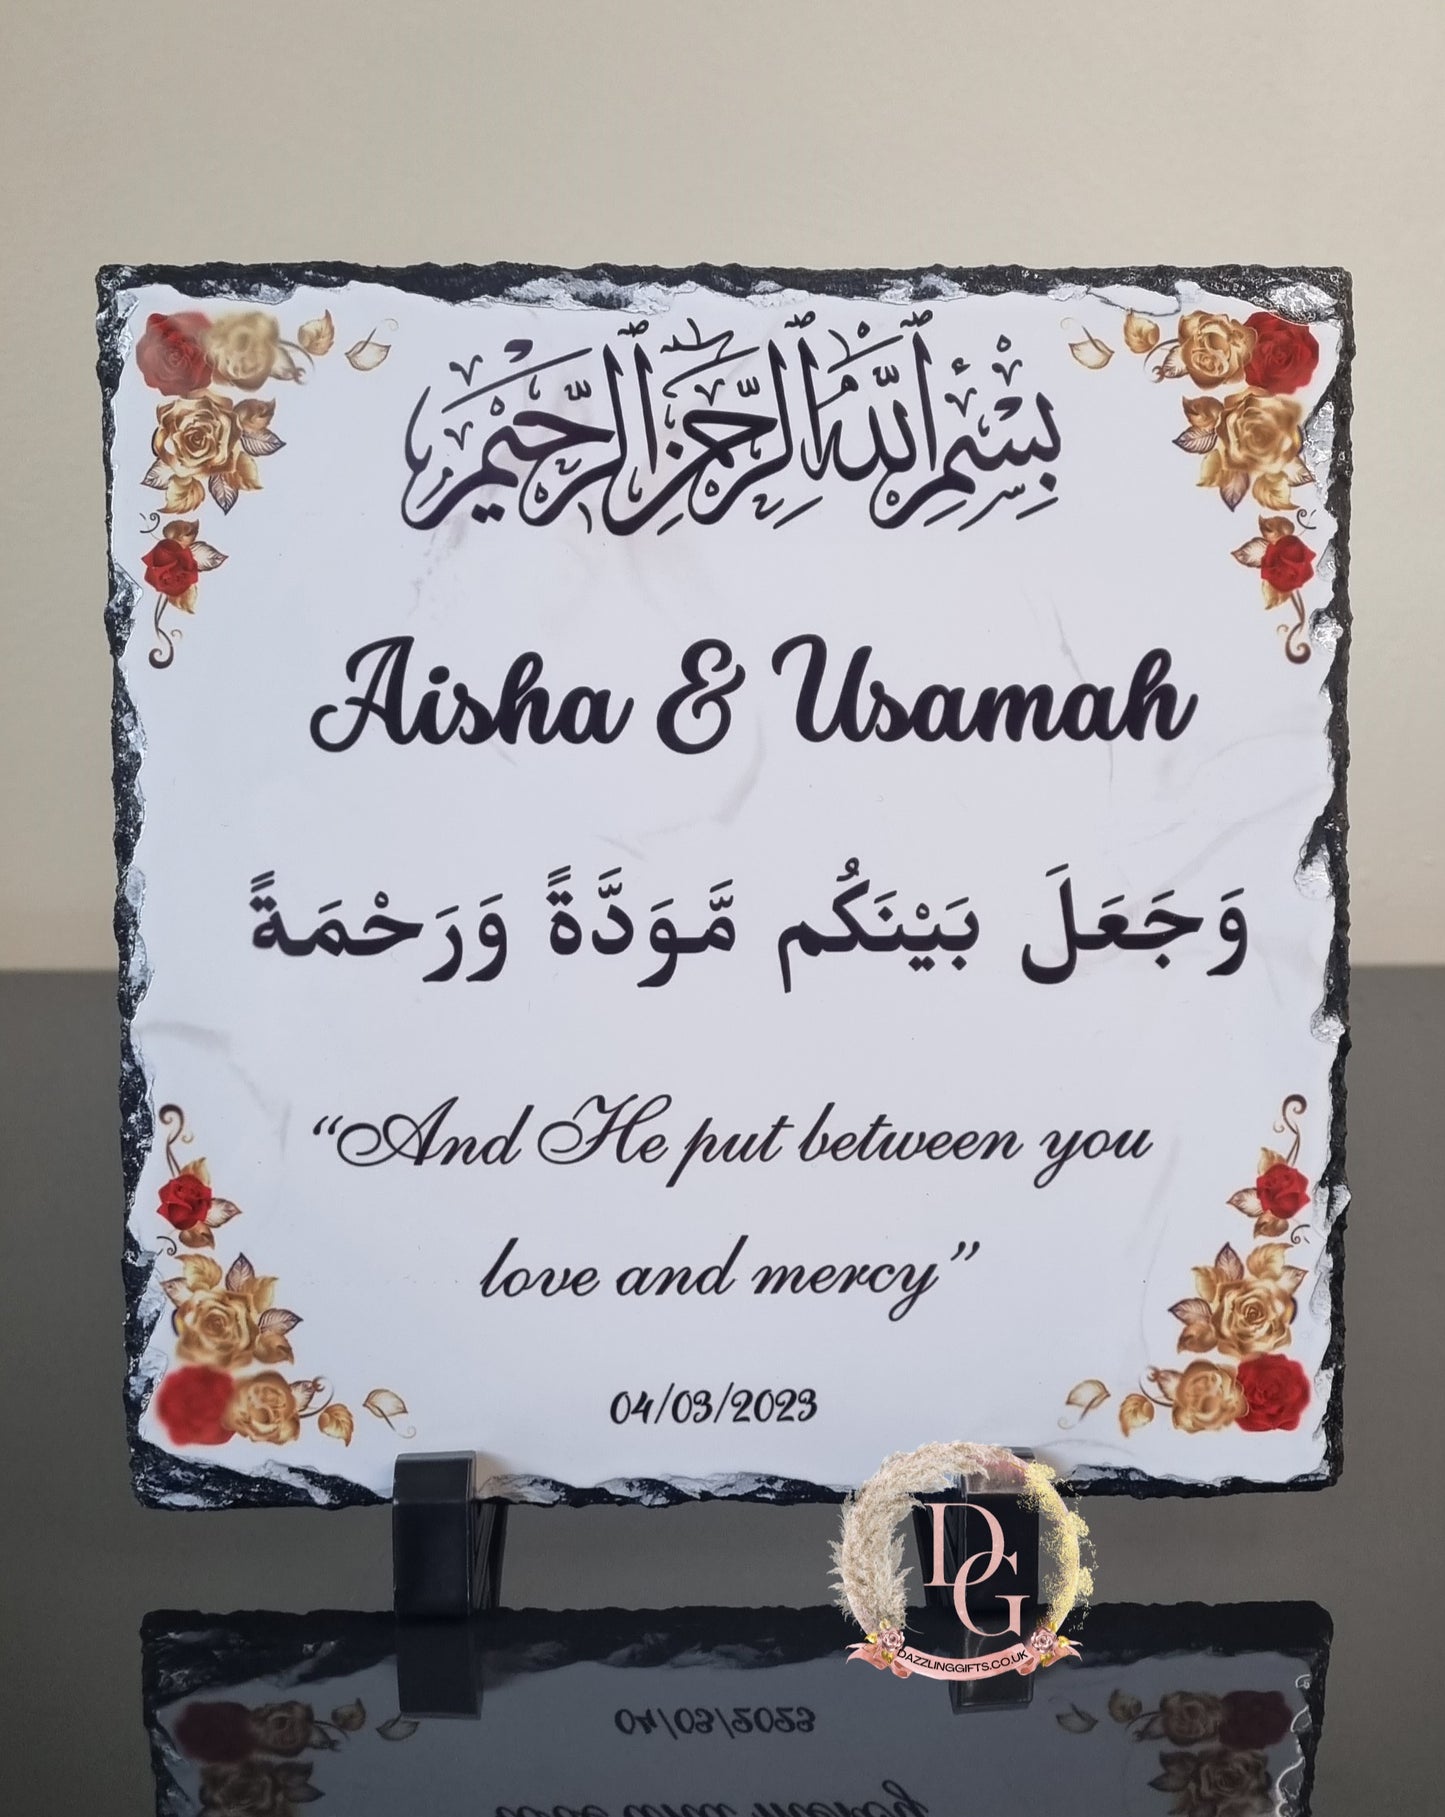 بِسْمِ ٱللَّهِ ٱلرَّحْمَٰنِ ٱلرَّحِيْمِ
Aisha & Usamah
وَجَعَلَ بَيْنَكُم مَّوَدَّةً وَرَحْمَةً
“And He put between you
love and mercy”
04/03/2023
DG
DAZZLINGGIFTS.CO.UK